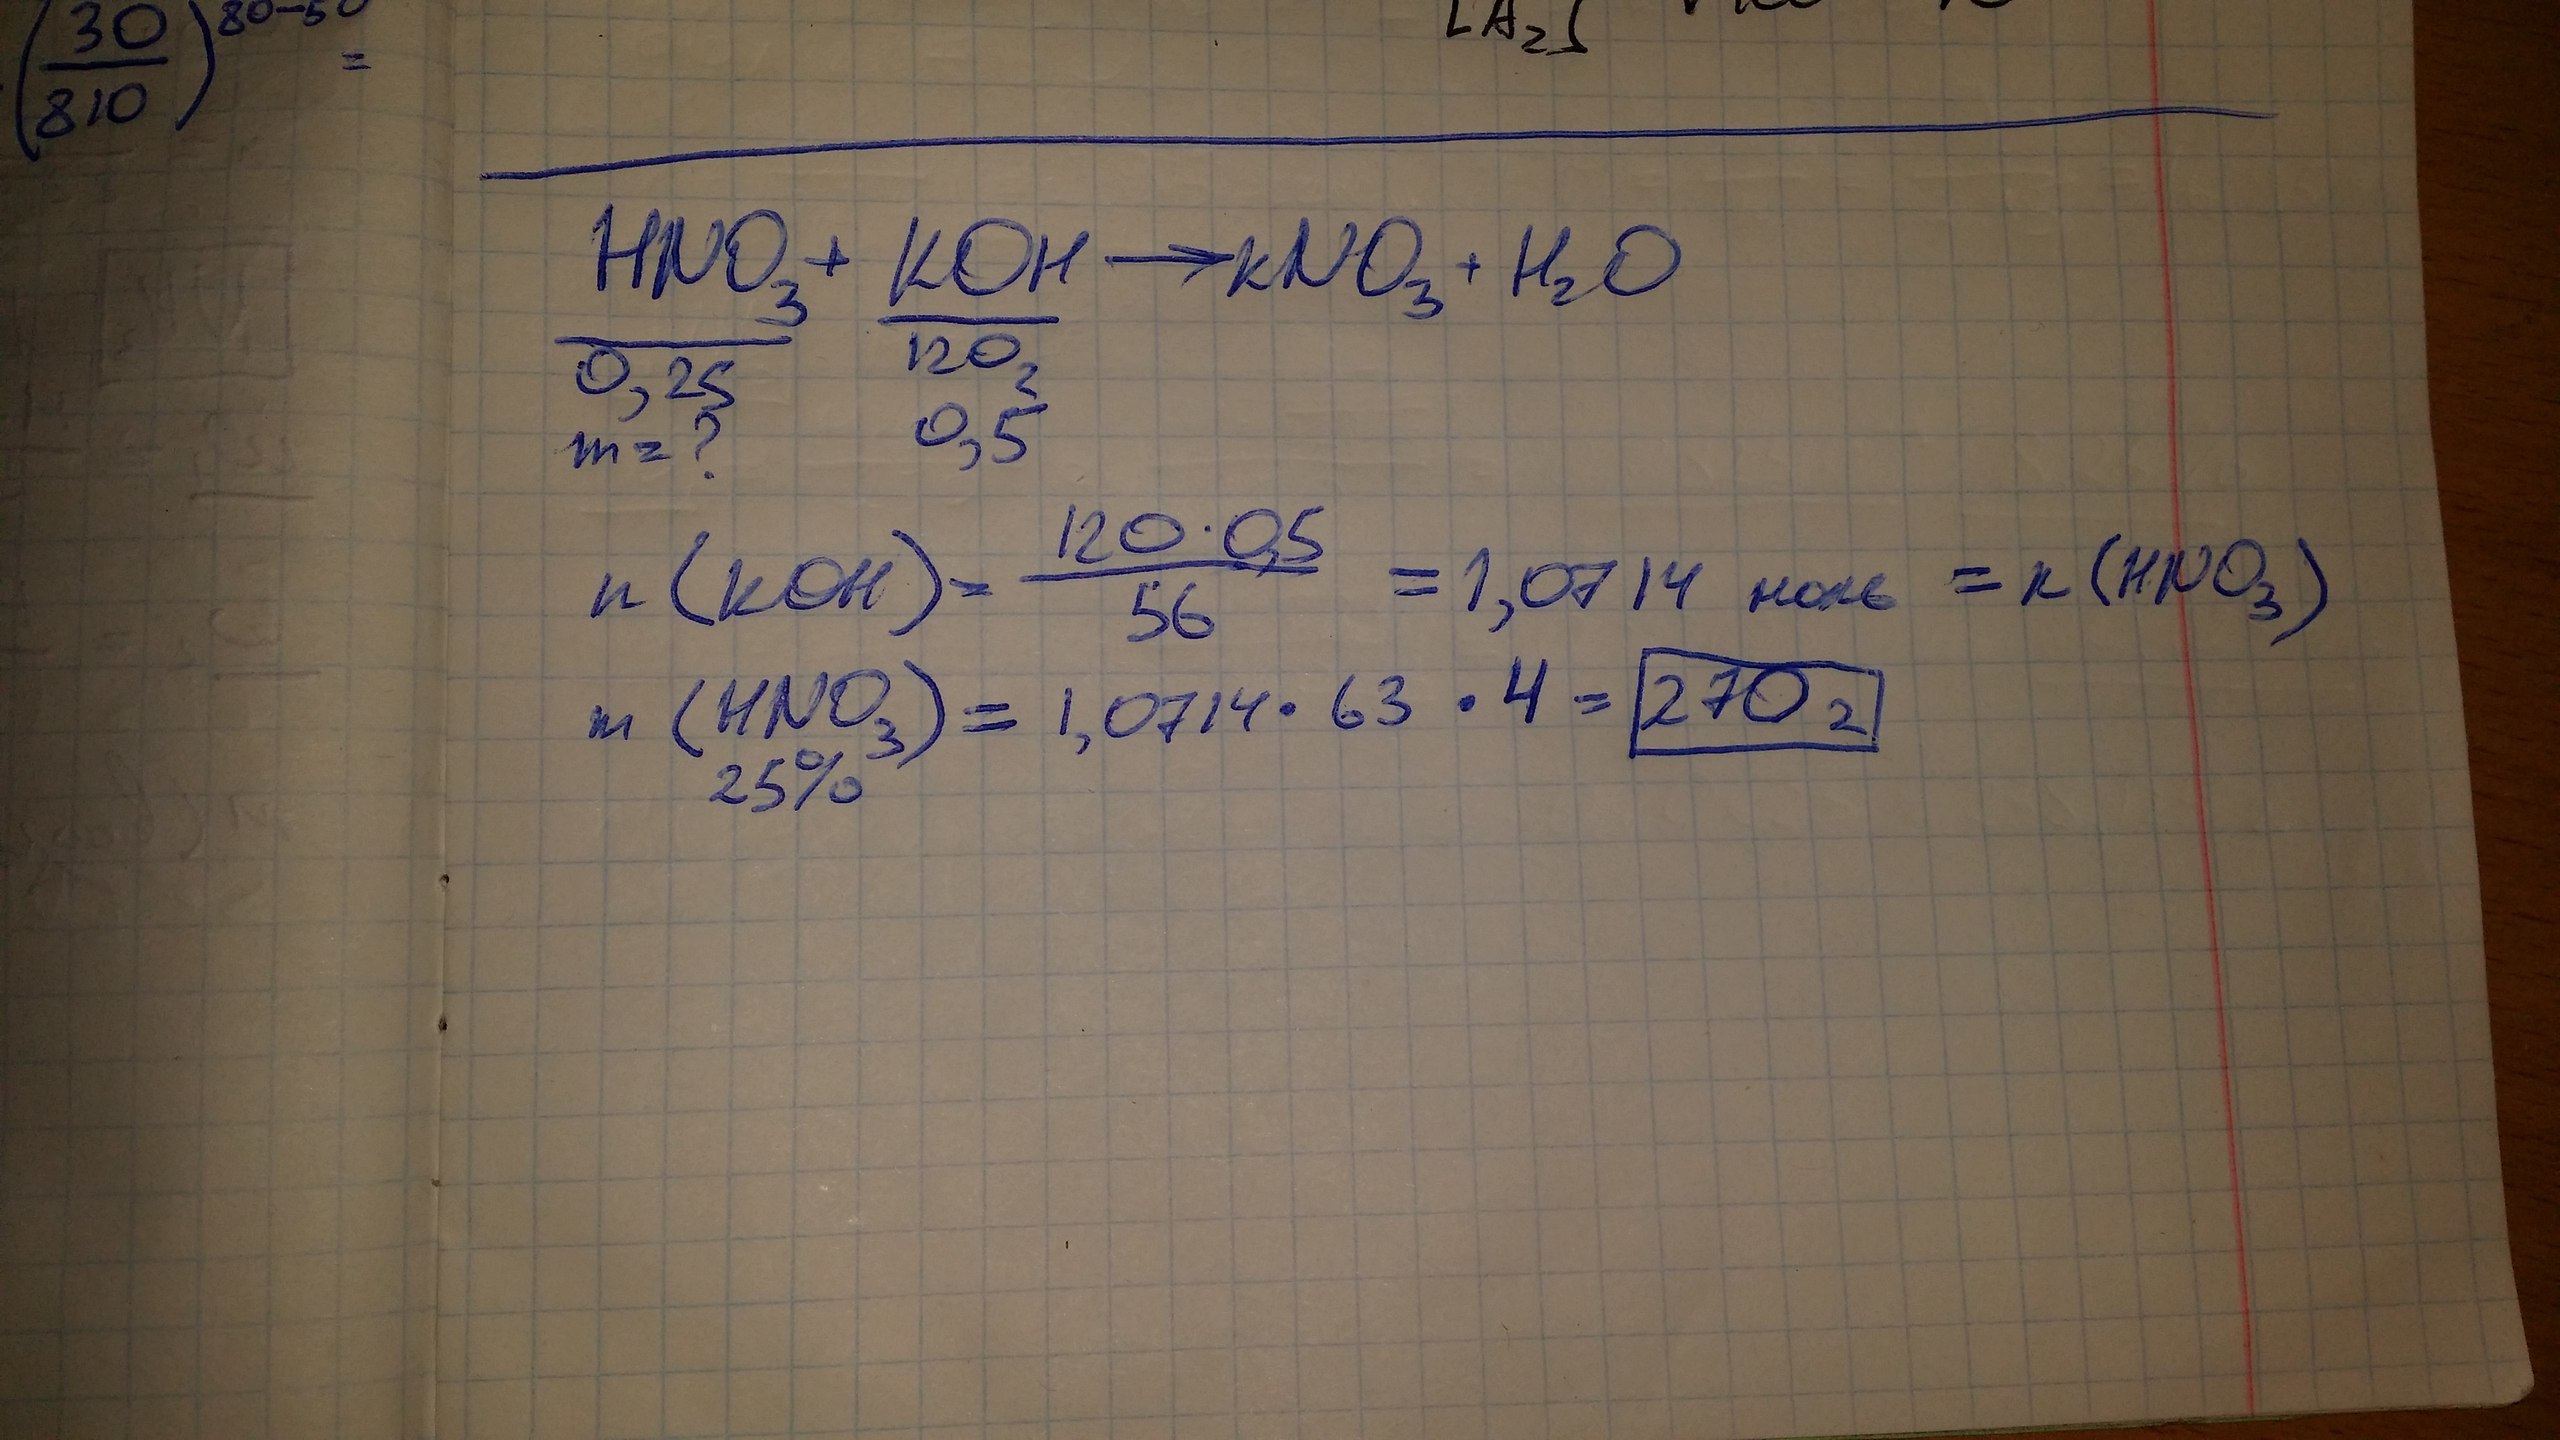 (30/810)^80-50 =
[A₂]
HNO₃ + KOH → KNO₃ + H₂O
0,25 120г
m=? 0,5
n(KOH) = 120·0,5/56 = 1,0714 моль = n(HNO₃)
m(HNO₃) = 1,0714 · 63 · 4 = 270г
25%